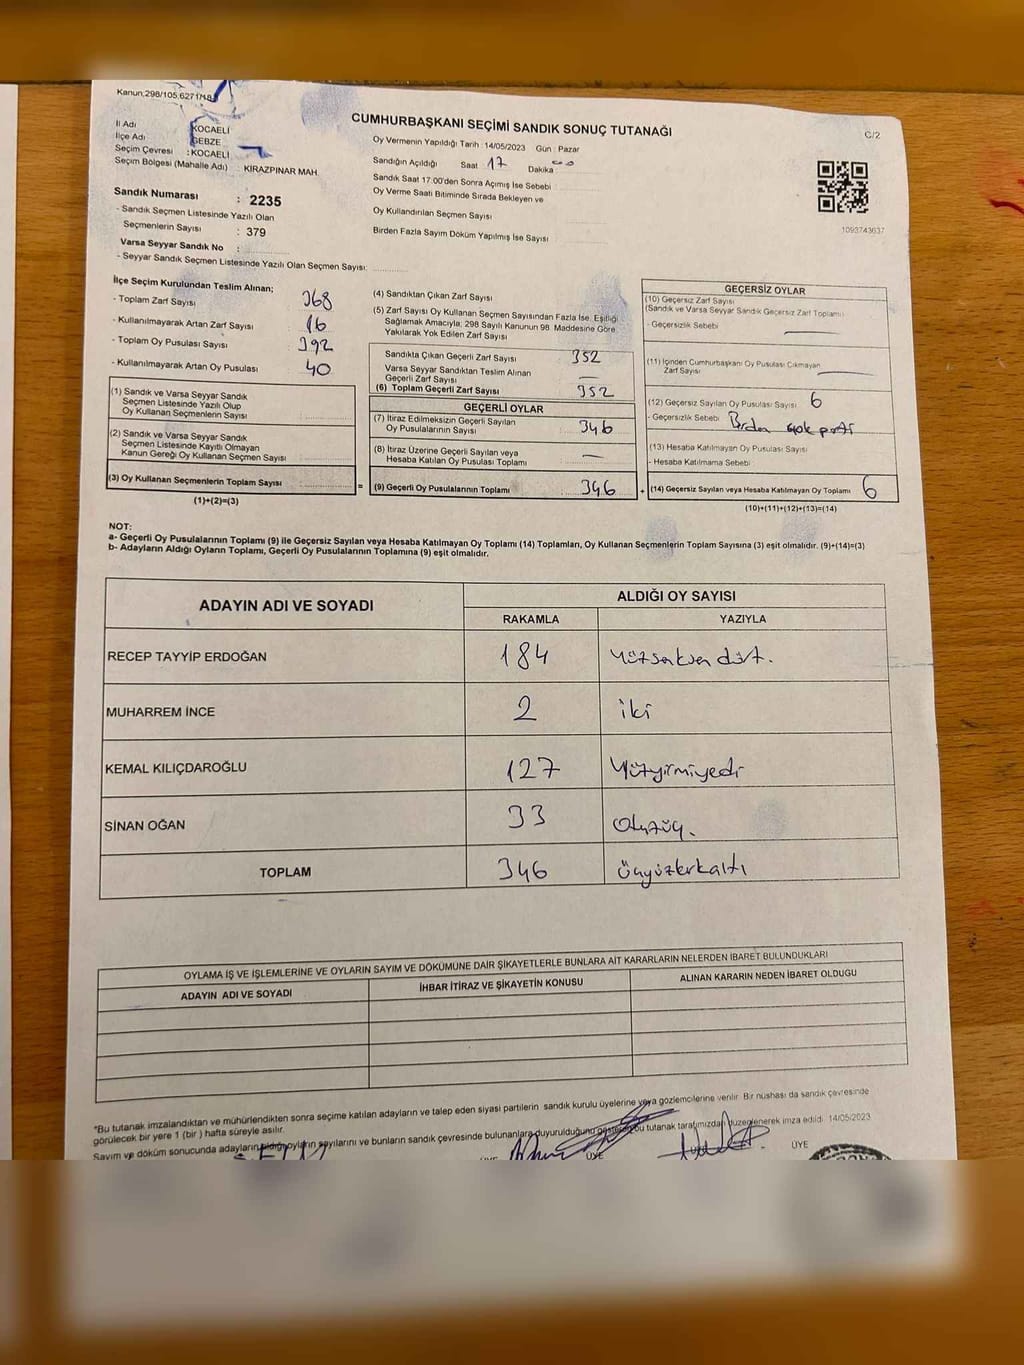 Kanun;298/105,6271/18
CUMHURBAŞKANI SEÇİMİ SANDIK SONUÇ TUTANAĞI
C/2
İl Adı KOCAELİ
İlçe Adı GEBZE
Seçim Çevresi : KOCAELİ
Seçim Bölgesi (Mahalle Adı) KIRAZPINAR MAH.
Sandık Numarası : 2235
- Sandık Seçmen Listesinde Yazılı Olan
Seçmenlerin Sayısı : 379
Varsa Seyyar Sandık No :
- Seyyar Sandık Seçmen Listesinde Yazılı Olan Seçmen Sayısı:
Oy Vermenin Yapıldığı Tarih 14/05/2023 Gün : Pazar
Sandığın Açıldığı Saat 17 Dakika 00
Sandık Saat 17:00'den Sonra Açımış İse Sebebi
Oy Verme Saati Bitiminde Sırada Bekleyen ve
Oy Kullandırılan Seçmen Sayısı
Birden Fazla Sayım Döküm Yapılmış İse Sayısı
1093743637
İlçe Seçim Kurulundan Teslim Alınan;
- Toplam Zarf Sayısı 368
- Kullanılmayarak Artan Zarf Sayısı 16
- Toplam Oy Pusulası Sayısı 392
- Kullanılmayarak Artan Oy Pusulası 40
(1) Sandık ve Varsa Seyyar Sandık
Seçmen Listesinde Yazılı Olup
Oy Kullanan Seçmenlerin Sayısı
(2) Sandık ve Varsa Seyyar Sandık
Seçmen Listesinde Kayıtlı Olmayan
Kanun Gereği Oy Kullanan Seçmen Sayısı
(3) Oy Kullanan Seçmenlerin Toplam Sayısı
(1)+(2)=(3)
=
(4) Sandıktan Çıkan Zarf Sayısı
(5) Zarf Sayısı Oy Kullanan Seçmen Sayısından Fazla İse, Eşitliği
Sağlamak Amacıyla; 298 Sayılı Kanunun 98. Maddesine Göre
Yakılarak Yok Edilen Zarf Sayısı
Sandıkta Çıkan Geçerli Zarf Sayısı 352
Varsa Seyyar Sandıktan Teslim Alınan
Geçerli Zarf Sayısı —
(6) Toplam Geçerli Zarf Sayısı 352
GEÇERLİ OYLAR
(7) İtiraz Edilmeksizin Geçerli Sayılan
Oy Pusulalarının Sayısı 346
(8) İtiraz Üzerine Geçerli Sayılan veya
Hesaba Katılan Oy Pusulası Toplamı —
(9) Geçerli Oy Pusulalarının Toplamı 346
+
GEÇERSİZ OYLAR
(10) Geçersiz Zarf Sayısı
(Sandık ve Varsa Seyyar Sandık Geçersiz Zarf Toplamı)
- Geçersizlik Sebebi —
(11) İçinden Cumhurbaşkanı Oy Pusulası Çıkmayan
Zarf Sayısı —
(12) Geçersiz Sayılan Oy Pusulası Sayısı 6
- Geçersizlik Sebebi Birden çok parti
(13) Hesaba Katılmayan Oy Pusulası Sayısı
- Hesaba Katılmama Sebebi
(14) Geçersiz Sayılan veya Hesaba Katılmayan Oy Toplamı 6
(10)+(11)+(12)+(13)=(14)
NOT:
a- Geçerli Oy Pusulalarının Toplamı (9) ile Geçersiz Sayılan veya Hesaba Katılmayan Oy Toplamı (14) Toplamları, Oy Kullanan Seçmenlerin Toplam Sayısına (3) eşit olmalıdır. (9)+(14)=(3)
b- Adayların Aldığı Oyların Toplamı, Geçerli Oy Pusulalarının Toplamına (9) eşit olmalıdır.
ADAYIN ADI VE SOYADI ALDIĞI OY SAYISI
RAKAMLA YAZIYLA
RECEP TAYYİP ERDOĞAN 184 Yüzseksen dört.
MUHARREM İNCE 2 iki
KEMAL KILIÇDAROĞLU 127 Yüzyirmiyedi
SİNAN OĞAN 33 Otuzüç.
TOPLAM 346 Üçyüzkırkaltı
OYLAMA İŞ VE İŞLEMLERİNE VE OYLARIN SAYIM VE DÖKÜMÜNE DAİR ŞİKAYETLERLE BUNLARA AİT KARARLARIN NELERDEN İBARET BULUNDUKLARI
ADAYIN ADI VE SOYADI İHBAR İTİRAZ VE ŞİKAYETİN KONUSU ALINAN KARARIN NEDEN İBARET OLDUĞU
"Bu tutanak imzalandıktan ve mühürlendikten sonra seçime katılan adayların ve talep eden siyasi partilerin sandık kurulu üyelerine veya gözlemcilerine verilir. Bir nüshası da sandık çevresinde
görülecek bir yere 1 (bir) hafta süreyle asılır.
Sayım ve döküm sonucunda adayların aldığı oyların sayılarını ve bunların sandık çevresinde bulunanlara duyurulduğunu gösteren bu tutanak tarafımızdan düzenlenerek imza edildi. 14/05/2023
ÜYE ÜYE